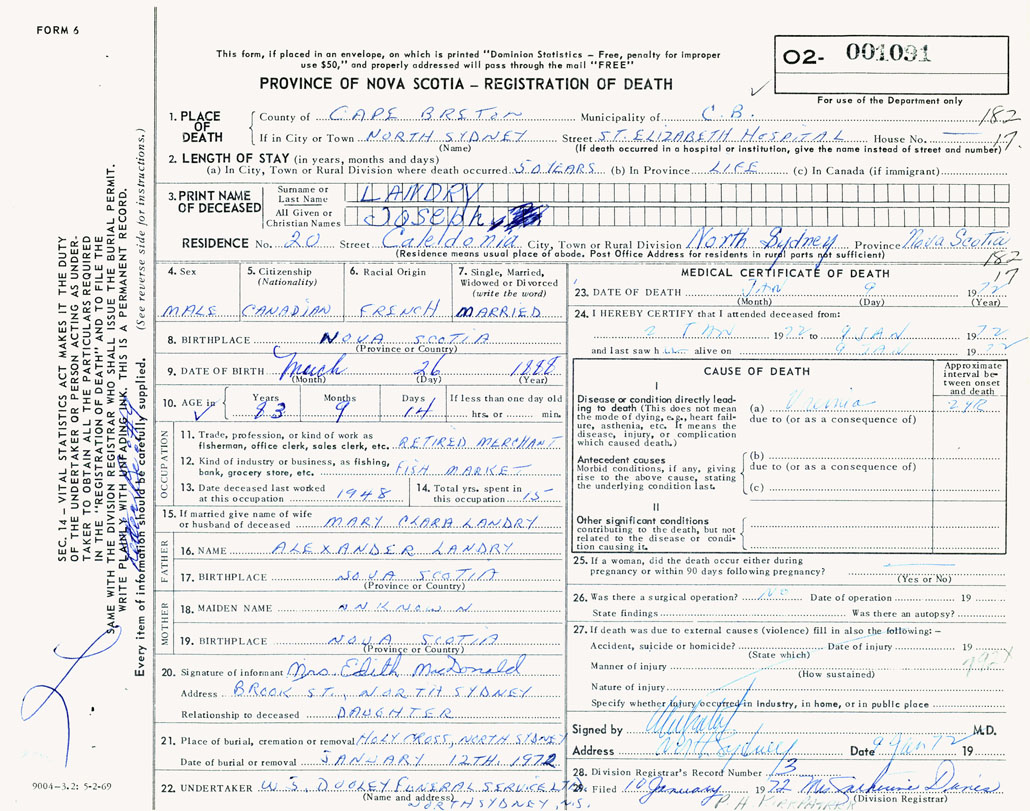 FORM 6
This form, if placed in an envelope, on which is printed "Dominion Statistics – Free, penalty for improper
use $50," and properly addressed will pass through the mail "FREE"
PROVINCE OF NOVA SCOTIA – REGISTRATION OF DEATH
O2- 001091
For use of the Department only
1. PLACE OF DEATH
County of CAPE BRETON Municipality of C.B. 182
If in City or Town NORTH SYDNEY Street ST. ELIZABETH HOSPITAL House No. — 17
(Name) (If death occurred in a hospital or institution, give the name instead of street and number)
2. LENGTH OF STAY (in years, months and days)
(a) In City, Town or Rural Division where death occurred 50 YEARS (b) In Province LIFE (c) In Canada (if immigrant)
3. PRINT NAME OF DECEASED
Surname or Last Name LANDRY
All Given or Christian Names Joseph
RESIDENCE No. 20 Street Caledonia City, Town or Rural Division North Sydney Province Nova Scotia
(Residence means usual place of abode. Post Office Address for residents in rural parts not sufficient) 182
17
4. Sex
MALE
5. Citizenship (Nationality)
CANADIAN
6. Racial Origin
FRENCH
7. Single, Married, Widowed or Divorced (write the word)
MARRIED
8. BIRTHPLACE NOVA SCOTIA
(Province or Country)
9. DATE OF BIRTH March 26 1888
(Month) (Day) (Year)
10. AGE in Years Months Days If less than one day old
83 9 14 hrs. or min.
OCCUPATION
11. Trade, profession, or kind of work as
fisherman, office clerk, sales clerk, etc. RETIRED MERCHANT
12. Kind of industry or business, as fishing,
bank, grocery store, etc. FISH MARKET
13. Date deceased last worked
at this occupation 1948
14. Total yrs. spent in
this occupation 15
15. If married give name of wife
or husband of deceased MARY CLARA LANDRY
FATHER
16. NAME ALEXANDER LANDRY
17. BIRTHPLACE NOVA SCOTIA
(Province or Country)
MOTHER
18. MAIDEN NAME UNKNOWN
19. BIRTHPLACE NOVA SCOTIA
(Province or Country)
20. Signature of informant Mrs. Edith MacDonald
Address BROOK ST., NORTH SYDNEY
Relationship to deceased DAUGHTER
21. Place of burial, cremation or removal HOLY CROSS, NORTH SYDNEY
Date of burial or removal JANUARY 12TH. 1972
22. UNDERTAKER W.J. DOOLEY FUNERAL SERVICE LTD
(Name and address) NORTH SYDNEY, N.S.
MEDICAL CERTIFICATE OF DEATH
23. DATE OF DEATH JAN 9 1972
(Month) (Day) (Year)
24. I HEREBY CERTIFY that I attended deceased from:
2 JAN 1972 to 9 JAN 1972
and last saw h im alive on 9 JAN 1972
CAUSE OF DEATH
Approximate interval between onset and death
I
Disease or condition directly leading to death (This does not mean the mode of dying, e.g., heart failure, asthenia, etc. It means the disease, injury, or complication which caused death.)
(a) Uremia
due to (or as a consequence of)
Antecedent causes
Morbid conditions, if any, giving rise to the above cause, stating the underlying condition last.
(b)
due to (or as a consequence of)
(c)
II
Other significant conditions
contributing to the death, but not related to the disease or condition causing it.
25. If a woman, did the death occur either during
pregnancy or within 90 days following pregnancy? —
(Yes or No)
26. Was there a surgical operation? NO Date of operation 19
State findings Was there an autopsy?
27. If death was due to external causes (violence) fill in also the following: –
Accident, suicide or homicide? Date of injury 19
(State which)
Manner of injury
(How sustained)
Nature of injury
Specify whether injury occurred in industry, in home, or in public place
Signed by M.D.
Address North Sydney Date 9 Jan 72 19
28. Division Registrar's Record Number 13
29. Filed 10 January 1972 Mrs Catherine Davis
(Division Registrar)
SEC. 14 – VITAL STATISTICS ACT MAKES IT THE DUTY
OF THE UNDERTAKER OR PERSON ACTING AS UNDERTAKER TO OBTAIN ALL THE PARTICULARS REQUIRED
IN THE "REGISTRATION OF DEATH" AND TO FILE THE
SAME WITH THE DIVISION REGISTRAR WHO SHALL ISSUE THE BURIAL PERMIT.
WRITE PLAINLY WITH UNFADING INK. THIS IS A PERMANENT RECORD.
Every item of information should be carefully supplied. (See reverse side for instructions.)
9004-3.2: 5-2-69